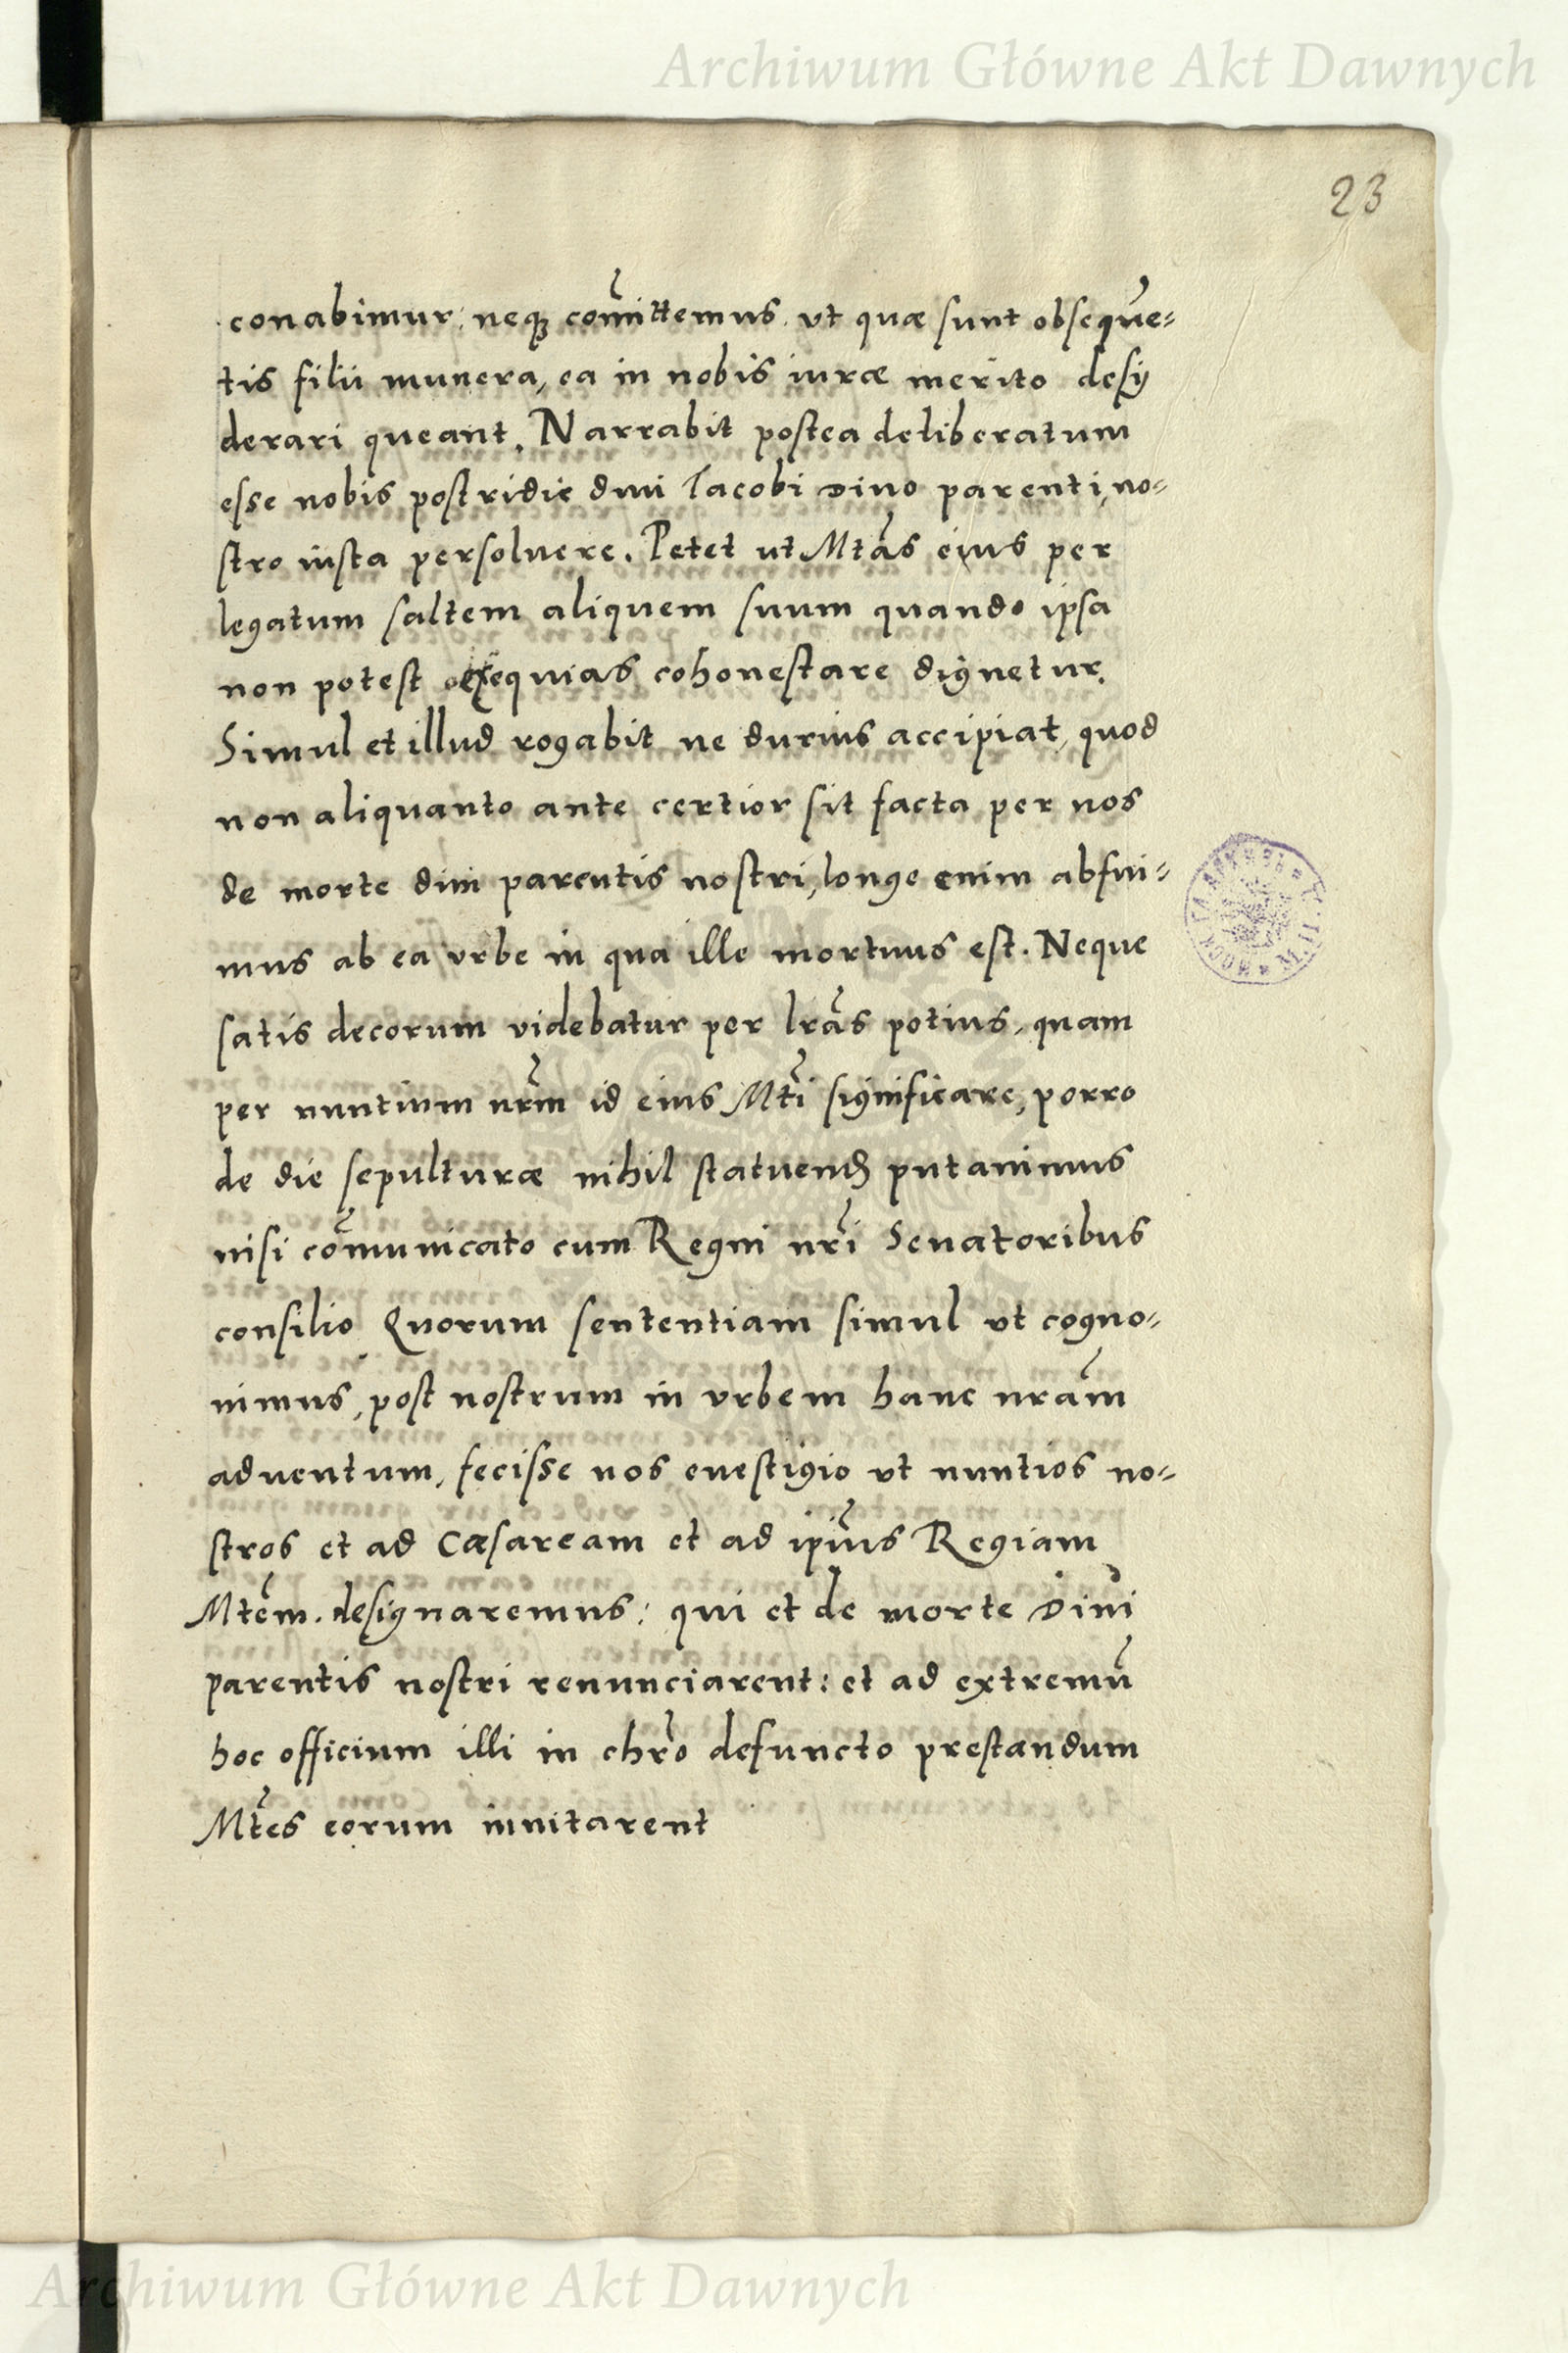 Archiwum Główne Akt Dawnych
23
conabimur: neq̃ com̃ittemus. vt quæ sunt obseque͂=
tis filii munera, ea in nobis iuræ merito desÿ
derari queant. Narrabit postea deliberatum
esse nobis postridie diui Iacobi Diuo parenti no=
stro iusta persoluere. Petet ut Mta͂s eius per
legatum saltem aliquem suum quando ipsa
non potest exequias cohonestare dignetur.
Simul et illud rogabit ne durius accipiat, quod
non aliquanto ante certior sit facta per nos
de morte diui parentis nostri, longe enim abfui=
mus ab ea vrbe in qua ille mortuus est. Neque
satis decorum videbatur per lra͂s potius, quam
per nuntium nrm̃ id eius Mti͂ significare, porro
de die sepulturæ nihil statuend putauimus
nisi com̃unicato cum Regni nri͂ Senatoribus
consilio Quorum sententiam simul vt cogno=
uimus, post nostrum in vrbem hanc nra͂m
aduentum, fecisse nos euestigio vt nuntios no=
stros et ad Cæsaream et ad ipiu͂s Regiam
Mte͂m. designaremus: qui et de morte Diui
parentis nostri renunciarent: et ad extremu͂
hoc officium illi in chro͂ defuncto prestandum
Mte͂s eorum inuitarent
Archiwum Główne Akt Dawnych